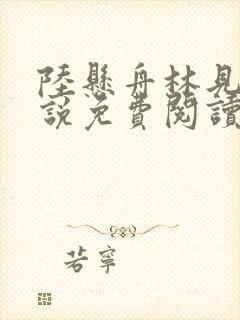 陸懸舟林見
說免費閱讀
若寧